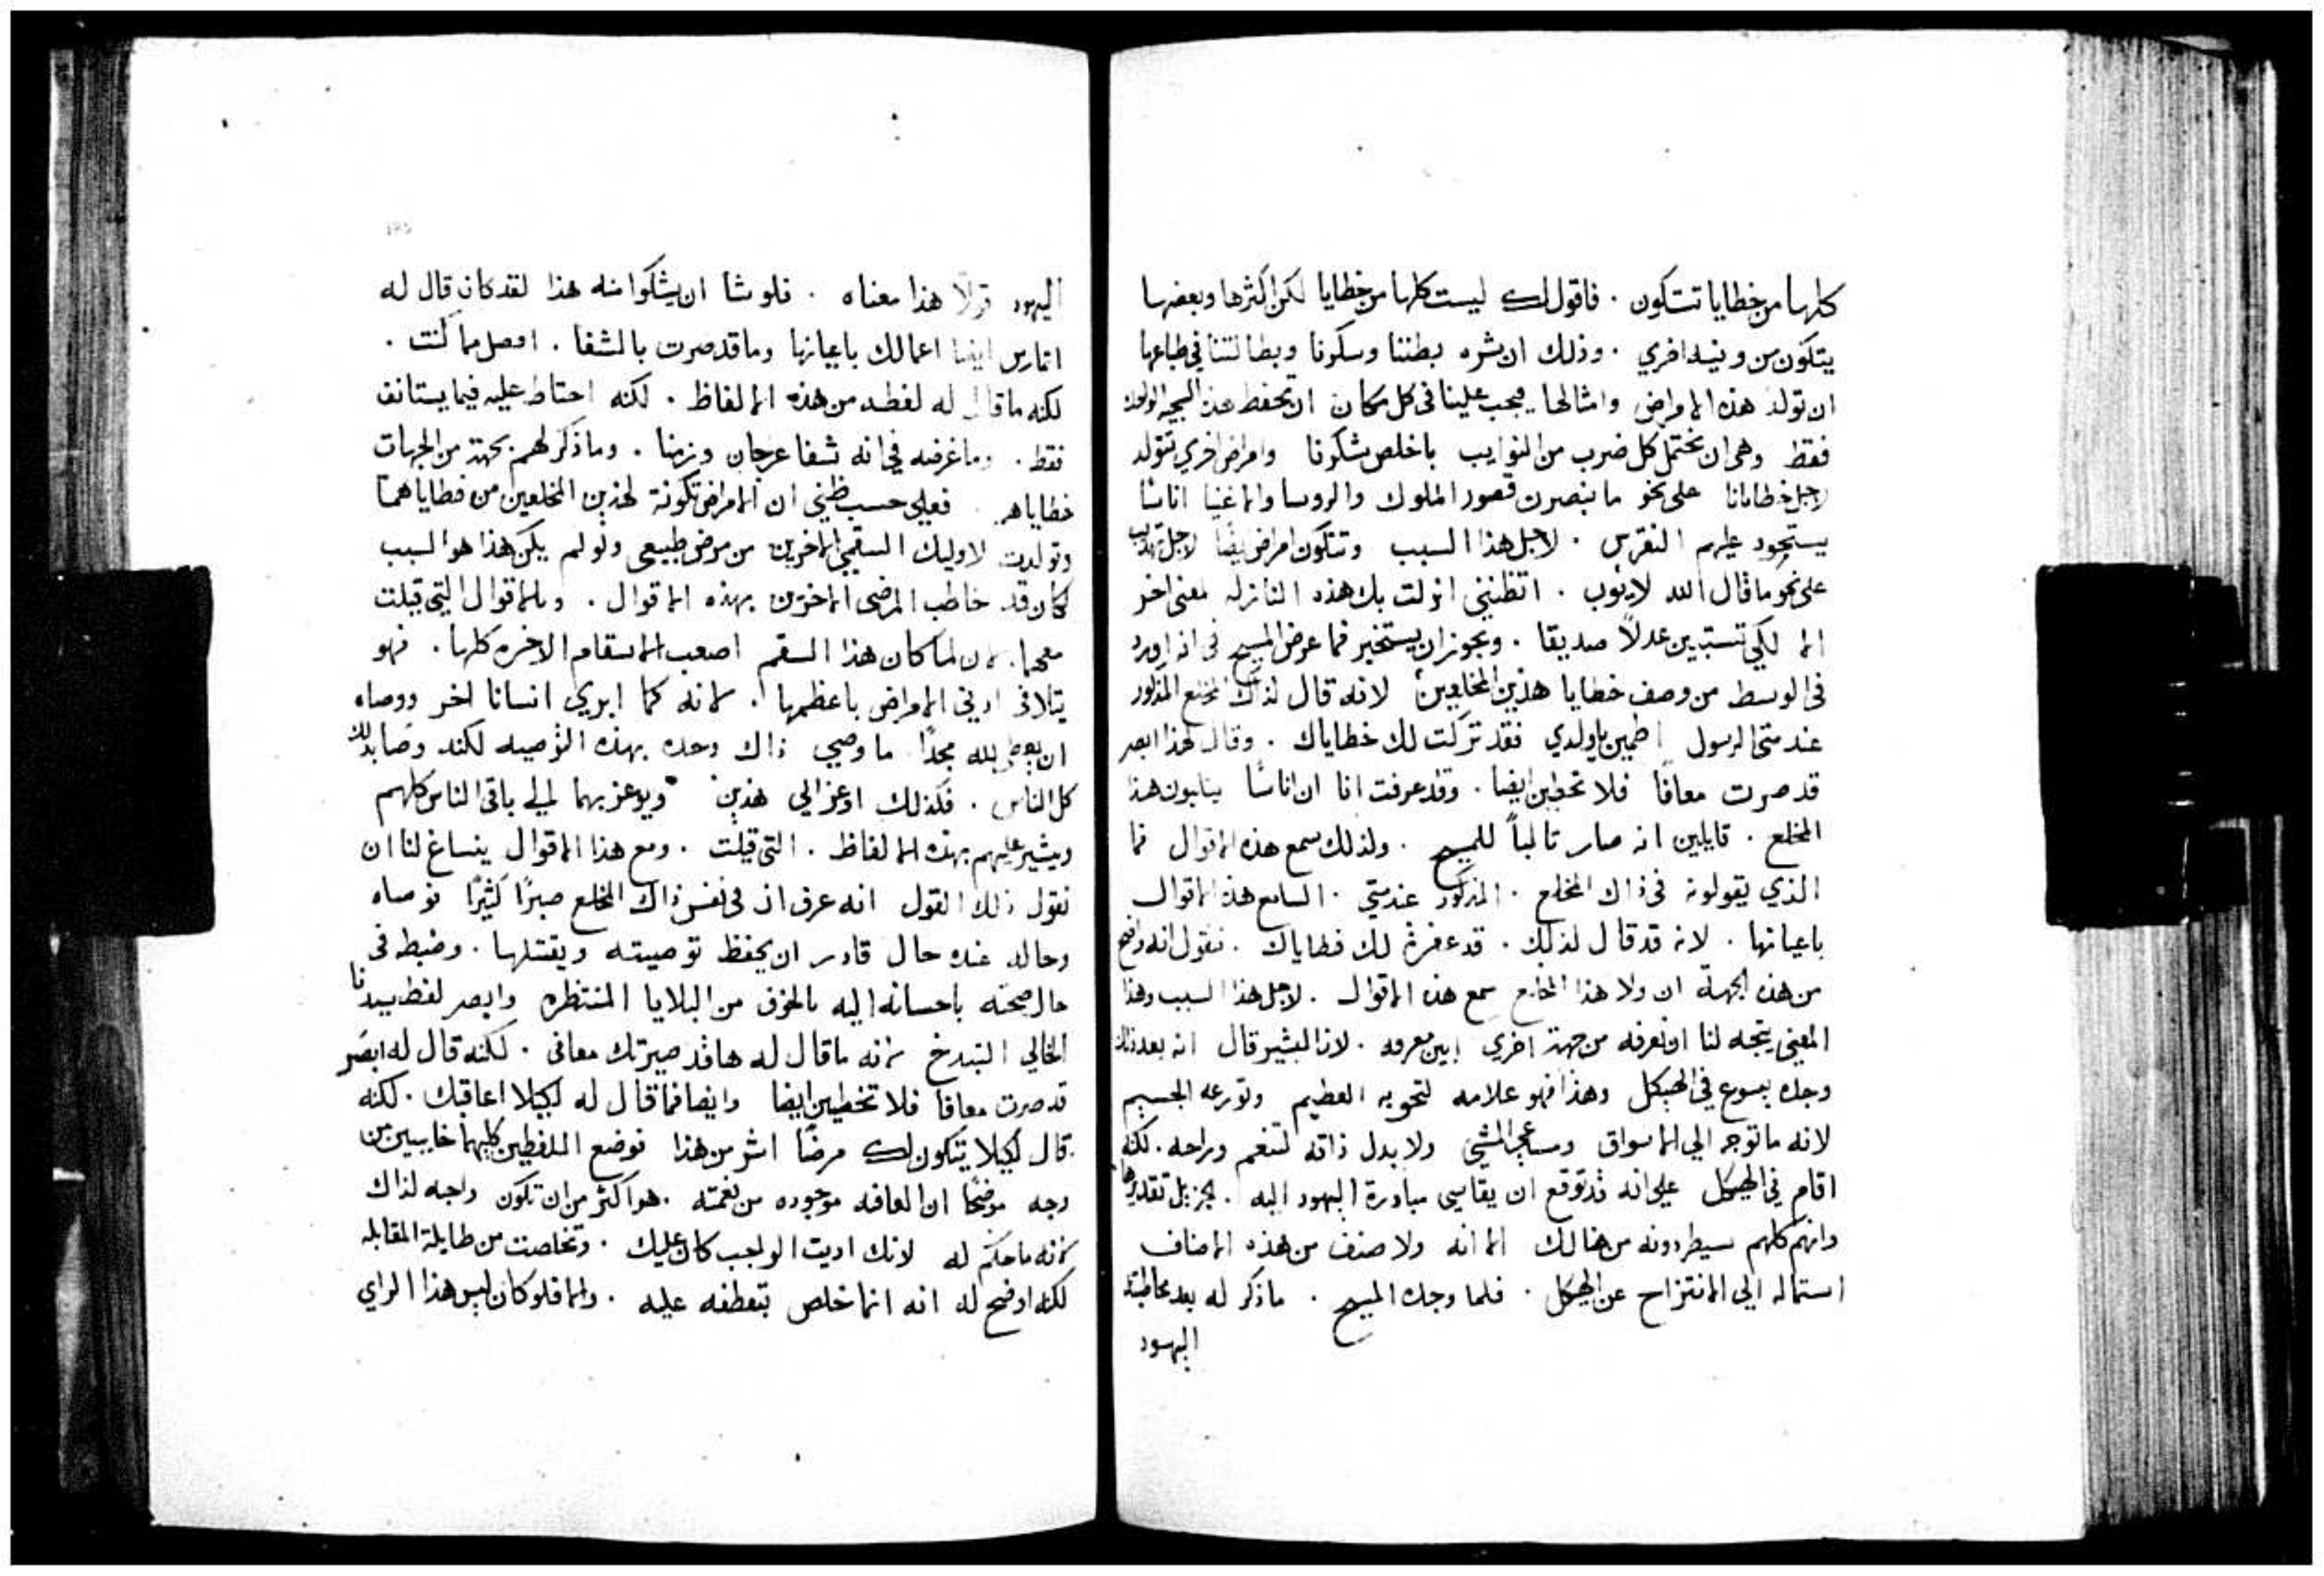 كلها من خطايا تتكون . فاقول لك ليست كلها من خطايا لكن اكثرها وبعضها
يتكون من ونيه اخري . وذلك ان شره بطننا وسكرنا وبطالتنا في طباعها
ان تولد هذه الامراض وامثالها فيجب علينا في كل مكان ان نحفظ هذه السجيه الواحده
فقط وهي ان نحتمل كل ضرب من النوايب باخلص شكرنا وامراض اخري تتولد
لاجل خطايانا علي نحو ما نبصر في قصور الملوك والروسا والاغنيا اناسًا
يستحود عليهم النقرس . لاجل هذا السبب وتتكون امراض ايضًا لاجل
علي نحو ما قال الله لايوب . اتظنني انزلت بك هذه النازله لمعني اخر
الا لكي تستبين عدلاً صديقا . ويجوز ان يستخبر فما عرض المسيح في انه اورد
في الوسط من وصف خطايا هذين المخلعين لانه قال لذاك المخلع المذكور
عند متي الرسول اطمين يا ولدي فقد تركت لك خطاياك . وقال لهذا ابصر
قد صرت معافًا فلا تخطين ايضا . وقد عرفت انا ان اناسًا يثلبون هذا
المخلع . قايلين انه صار ثالباً للمسيح . ولذلك سمع هذه الاقوال فما
الذي يقولونه في ذاك المخلع . المذكور عند متي . السامع هذه الاقوال
باعيانها . لانه قد قال لذلك . قد غفرة لك خطاياك . فنقول انه واضح
من هذه الجهة ان ولا هذا المخلع سمع هذه الاقوال . لاجل هذا السبب وهذا
المعني يتجه لنا ان نعرفه من جهة اخري ابين معرفه . لان البشير قال انه بعد ذلك
وجده يسوع في الهيكل وهذا فهو علامه لتحوبه العظيم وتورعه الجسيم
لانه ما توجه الي الاسواق ومساعي المشي ولا بدل ذاته لتنعم وراحه . لكنه
اقام في الهيكل علي انه قد توقع ان يقاسي مبادرة اليهود اليه . بجزيل تقديرها
وانهم كلهم سيطردونه من هنالك الا انه ولا صنف من هذه الاصناف
استماله الي الانتزاح عن الهيكل . فلما وجده المسيح . ما ذكر له بعد مخاطبة
اليهود
اليهود قولاً هذا معناه . فلو شا ان يشكوا منه هذا لقد كان قال له
اتمارس ايضا اعمالك باعيانها وما قد صرت بالشفا . افضل مما كنت .
لكنه ما قال له لفظه من هذه الالفاظ . لكنه احتاط عليه فيما يستانف
فقط . وما غرضه في انه شفا عرجان وزمنا . وما ذكر لهم بجهة من الجهات
خطاياهم . فعلي حسب ظني ان الامراض تكونة لهذين المخلعين من خطاياهما
وتولدت لاوليك السقمي الاخرين من مرض طبيعي ولو لم يكن هذا هو السبب
لكان قد خاطب المرضي الاخرين بهذه الاقوال . وبالاقوال التي قيلت
معها . لان لما كان هذا السقم اصعب الاسقام الاخره كلها . فهو
يتلافي ادني الامراض باعظمها . لانه كما ابري انسانا اخر ووصاه
ان يعطي لله مجدًا . ما وصي ذاك وحده بهذه التوصيه لكنه وصا بذلك
كل الناس . فكذلك اوعز الي هذين ويوعز بهما الي باقي الناس كلهم
ويشير عليهم بهذه الالفاظ . التي قيلت . ومع هذا الاقوال ينساغ لنا ان
نقول ذلك القول انه عرف ان في نفس ذاك المخلع صبرًا كثيرًا فوصاه
وحاله عنده حال قادر ان يحفظ توصيته ويقتبلها . وضبطه في
حال صحته باحسانه اليه بالخوف من البلايا المنتظره وابصر لفظ سيدنا
الخالي البذخ لانه ما قال له ها قد صيرتك معافي . لكنه قال له ابصر
قد صرت معافا فلا تخطين ايضا وايضا فما قال له لكيلا اعاقبك . لكنه
قال لكيلا يتكون لك مرضًا اشر من هذا فوضع اللفظين كليهما خايبين من
وجه موضحًا ان العافه موجوده من نعمته . هو اكثر من ان تكون واجبه لذاك
لانه ما حكم له لانك اديت الواجب كان عليك . وتخلصت من طايلة المقابله
لكنه اوضح له انه انما خلص بتعطفه عليه . والا فلو كان ليس هذا الراي